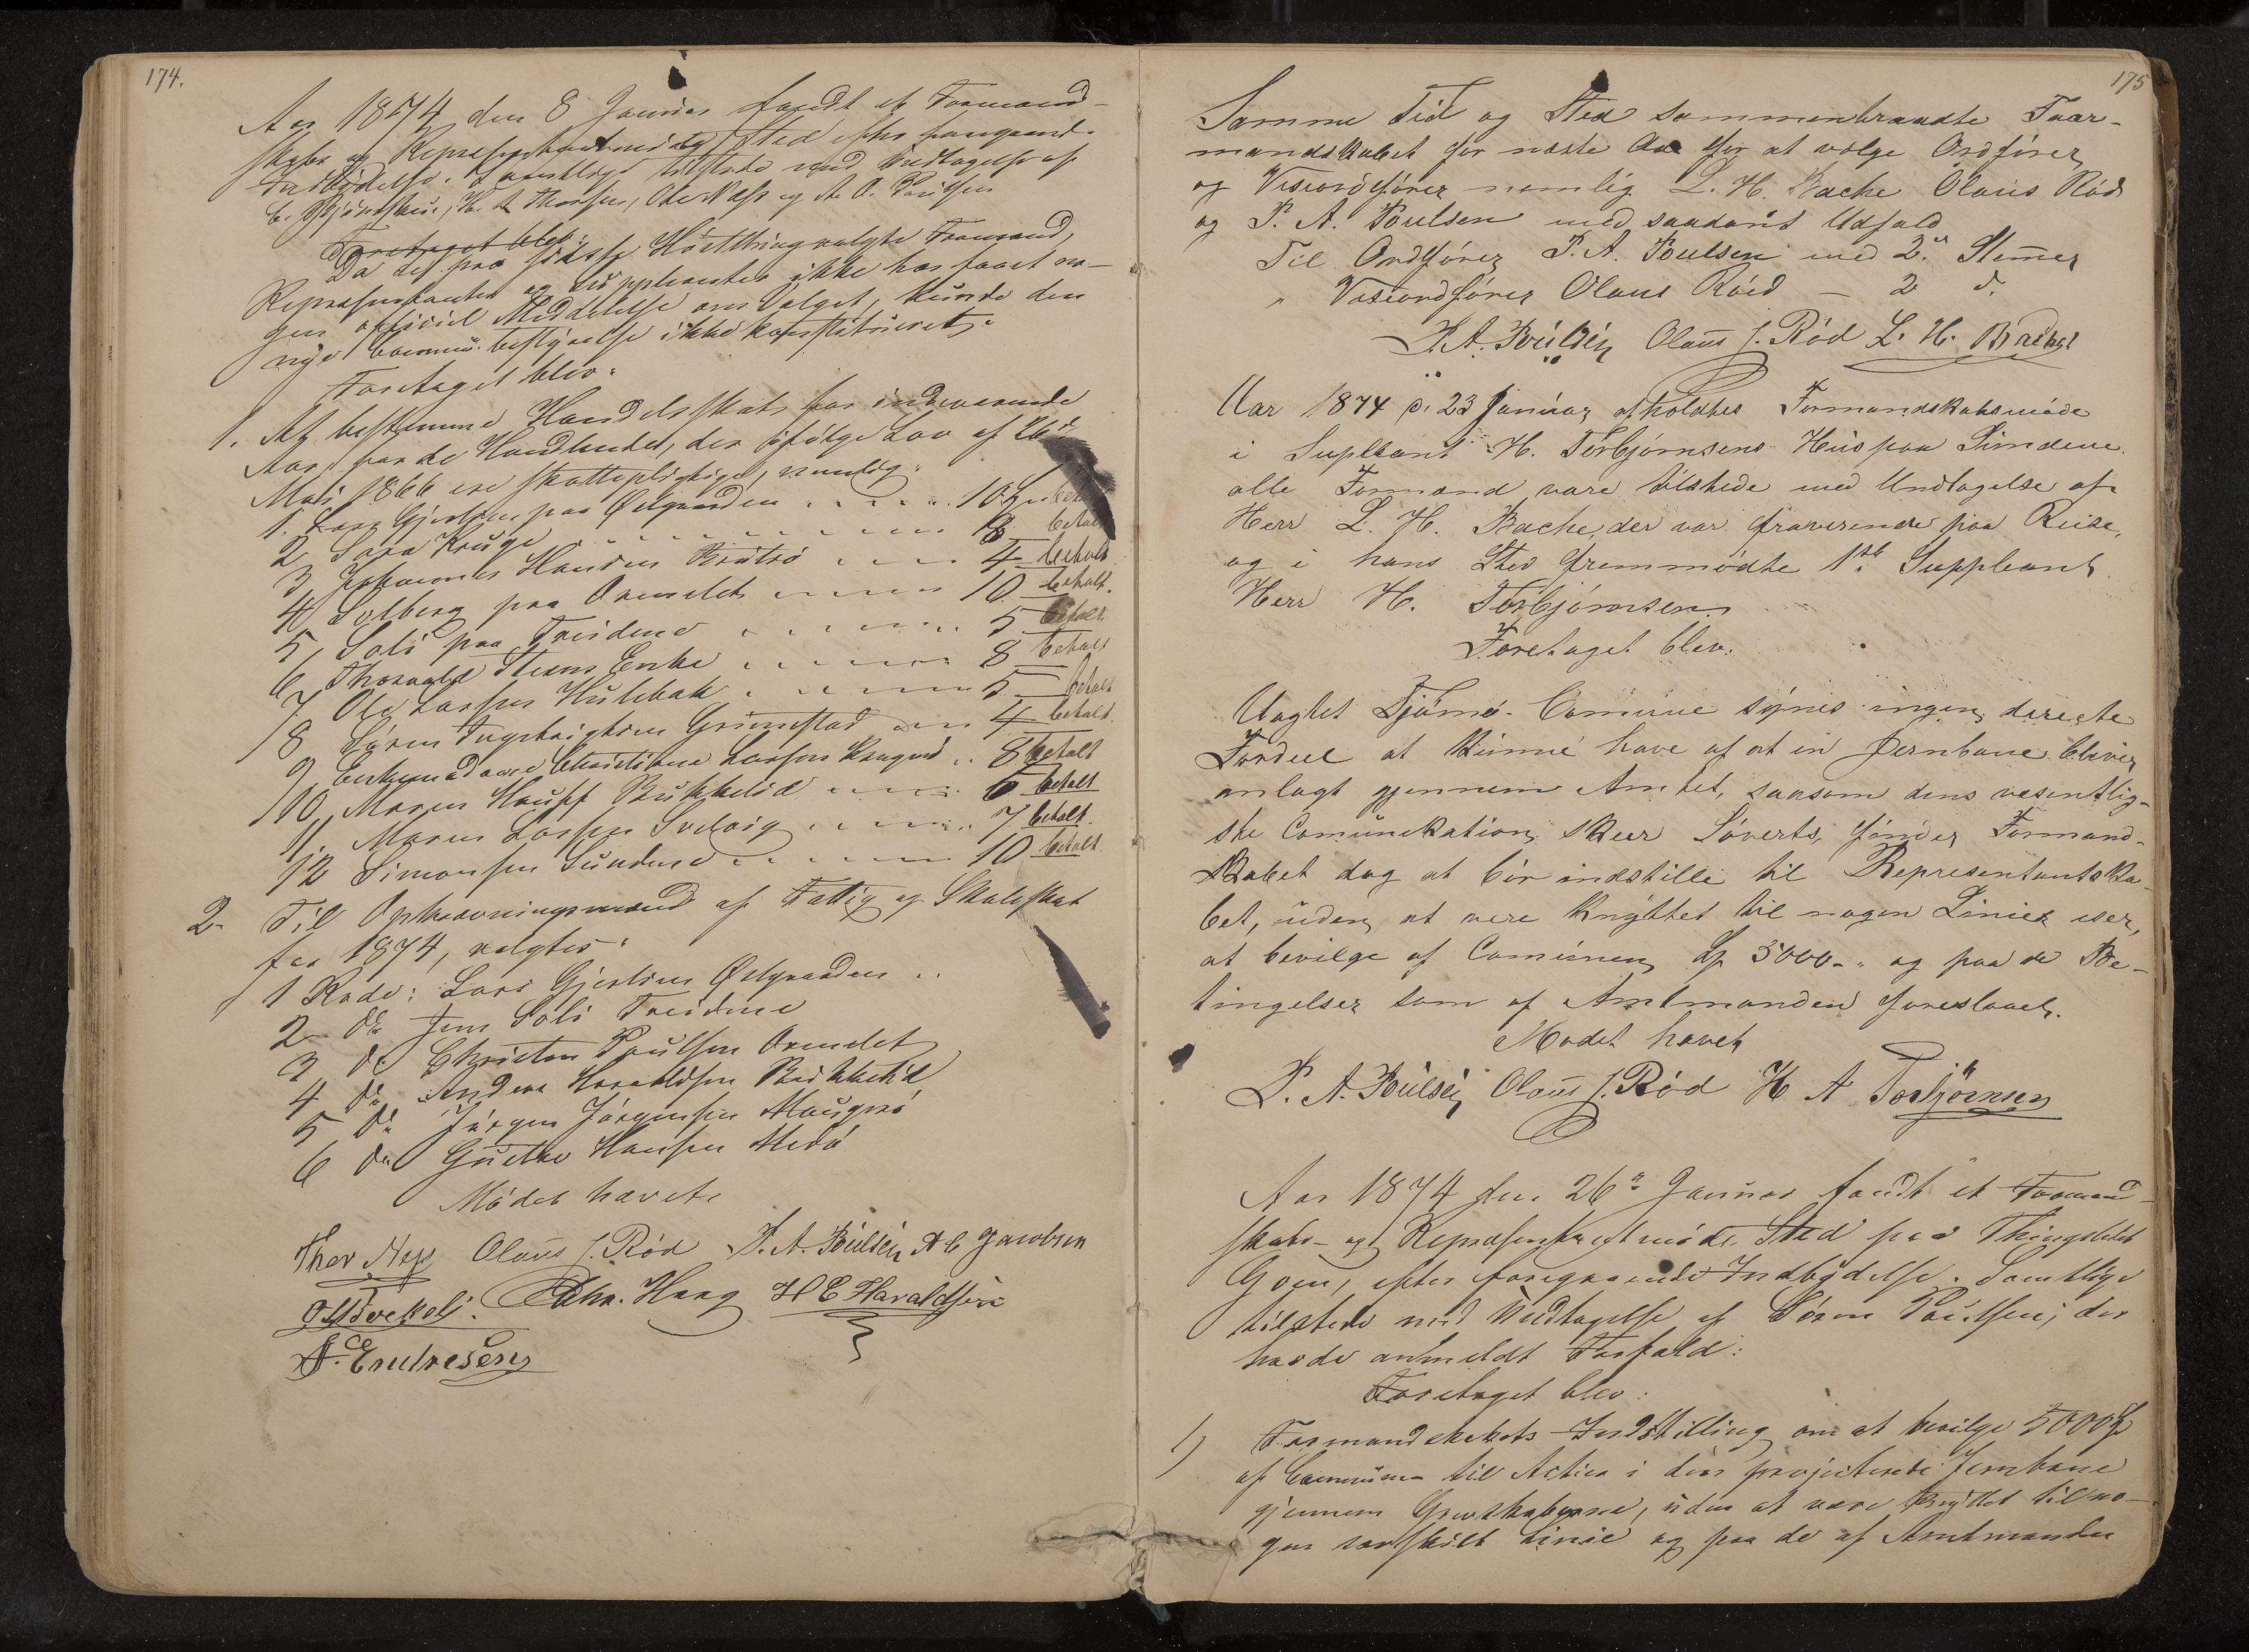 174.
Aar 1874 den 8 Januar fandt et Formand-
skabs og Repræsentantmøde Sted efter foregaaende
Indbydelse. Samtlige tilstede med Undtagelse af
C. Bjørnsen, H. A. Thorsen, Ole Næss og A. O. Paulsen
Foretaget blev:
Da det paa sidste Høstthing valgte Formænd,
Repræsentanter og Suppleanter ikke har faaet no-
gen officiel Meddelelse om Valget, kunde den
nye Commü.bestyrelse ikke konstitueret.
Foretaget blev:
1. At bestemme Handelsskat for indeværende
Aar for de Handlende, der ifølge Lov af 26de
Mai 1866 ere skattepligtige, nemlig:
1. Lars Gjertsen paa Østgaarden 10
2 Sara Kruge betalt
3 Johannes Hansen Brøtsø 4 betalt
4 Solberg paa Ormelet 10 betalt.
5, Soli paa Treidene 5 betalt
6 Thorvald Steens Enke 8 betalt
7 Ole Larsen Hulebak 5 betalt
8 Søren Grimestad 4 betalt.
9 Enkemadame Christiane Larsen Haugnø 8 betalt
10, Maren Hauff Bukkelid 6 betalt
11. Maren Larsen Solvig 7 betalt.
12 Simonsen Sundene 10 betalt.
2. Til Opkrævningsmænd af Fattig og Skoleskat
for 1874, valgtes:
1 Rode: Lars Gjertsen Østgaarden
2 do Jens Soli Treidene
3 do Christen Paulsen Ormelet
4 do Anders Haraldsen Bukkelid
5 do Jørgen Jørgensen Haugnø
6 do Gustav Hansen Medø
Mødet hævet.
Thor Næs Olaus J. Rød P. A. Poulsen A C Jacobsen
Chr. Haag H E Haraldsen
Endresen
175
Samme Tid og Sted sammentraadte Foor-
mandskabet for næste Aar for at vælge Ordfører
og Viseordfører nemlig L. H. Bache Olaus Rød
og P. A. Poulsen med saadant Udfald
Til Ordfører P. A. Poulsen med 2 Stemer
" Viseordfører Olaus Røed — 2 d.
P. A. Poulsen Olaus J. Rød L. H. Bache
Aar 1874 d. 23 Januar afholdtes Formandskabsmøde
i Supleant H. Torbjørnsens Huus paa Sundene.
alle Formænd vare tilstede med Undtagelse af
Herr L. H. Bache, der var fraværende paa Reise,
og i hans Sted fremmødte 1ste Suppleant
Herr H. Torbjørnsen.
Foretaget blev:
Uagtet Tjømø Comüne synes ingen directe
Fordeel at kunne have af at en Jernbane bliver
anlagt gjennem Amtet, saasom dens væsentlig-
ste Comunikation skeer Søverts, finder Formand-
skabet dog at bør indstille til Representantska-
bet, uden at være knyttet til nogen Linier især,
at bevilge af Comünen Sp 5000 - " og paa de Be-
tingelser som af Amtmanden foreslaaet.
Mødet hævet
P. A. Poulsen Olaus J. Rød H A Torbjørnsen
Aar 1874 den 26de Januar fandt et Formand-
skabs- og Repræsentantmøde Sted paa Thingstedet
Goen, efter foregaaende Indbydelse. Samtlige
tilstede med Undtagelse af Søren Paulsen, der
havde anmeldt Forfald:
Foretaget blev:
1) Formandskabets Indstilling om at bevilge 5000 Sp
af Commünen til Actier i den projecterede Jernbane
gjennem Grevskaberne, uden at være knyttet til no-
gen særskilt Linie og paa de af Amtmanden